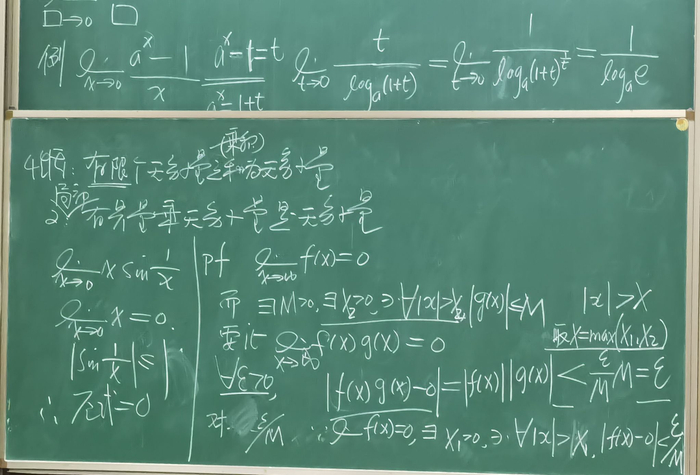 □→0 □
例 lim x→0 (a^x − 1)/x  a^x − 1 = t / a^x = 1+t  lim t→0 t/log_a(1+t) = lim t→0 1/log_a(1+t)^(1/t) = 1/log_a e
(乘积)
有限个无穷小量之和为无穷小量
2. 有界量乘无穷小量是无穷小量
lim x→0 x sin 1/x
lim x→0 x = 0.
|sin 1/x| ≤ 1
∴ 原式 = 0
pf lim x→∞ f(x) = 0
而 ∃M>0, ∃X₂>0, ∋ ∀|x|>X₂, |g(x)| ≤ M  |x| > X
要证 lim x→∞ f(x)g(x) = 0  取X = max(X₁, X₂)
∀ε>0, |f(x)g(x) − 0| = |f(x)||g(x)| < ε/M M = ε
对 ε/M ∵ lim f(x) = 0, ∃ X₁>0, ∋ ∀|x|>X₁, |f(x) − 0| < ε/M